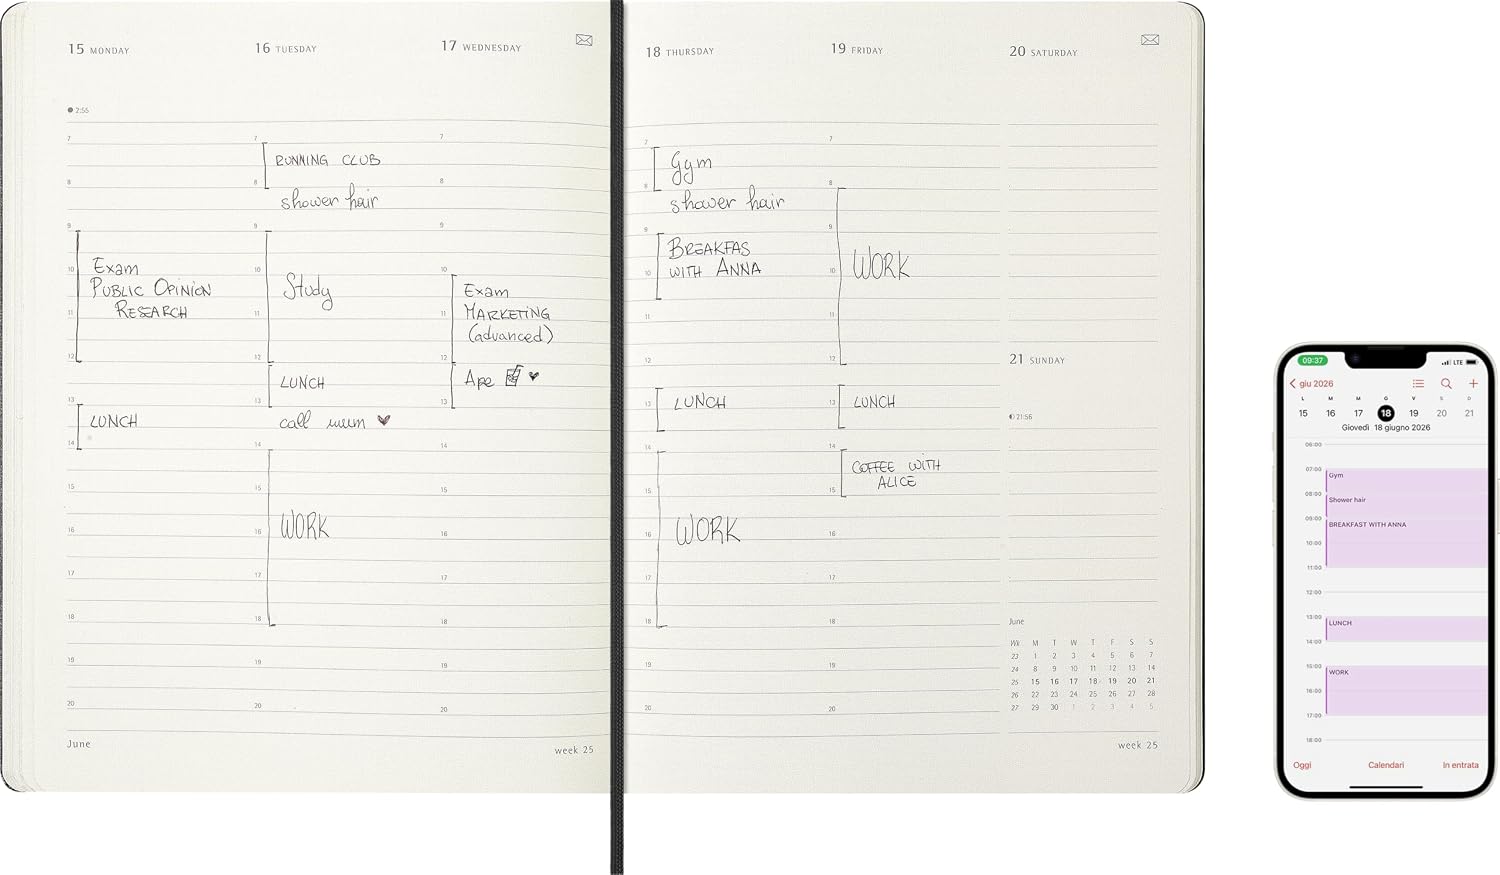 15 MONDAY
2:55
7
8
9
10
Exam
PUBLIC OPINION
11
RESEARCH
12
13
LUNCH
14
15
16
17
18
19
20
June
16 TUESDAY
7
RUNNING CLUB
8
shower hair
9
10
Study
11
12
LUNCH
13
call mum
14
15
16
WORK
17
18
19
20
17 WEDNESDAY
7
8
9
10
Exam
11
MARKETING
(advanced)
12
Ape
13
14
15
16
17
18
19
20
week 25
18 THURSDAY
7
Gym
8
shower hair
9
BREAKFAS
10
WITH ANNA
11
12
13
LUNCH
14
15
16
WORK
17
18
19
20
19 FRIDAY
7
8
9
10
WORK
11
12
13
LUNCH
14
COFFEE WITH
15
ALICE
16
17
18
19
20
20 SATURDAY
21 SUNDAY
21:56
June
Wk M T W T F S S
23 1 2 3 4 5 6 7
24 8 9 10 11 12 13 14
25 15 16 17 18 19 20 21
26 22 23 24 25 26 27 28
27 29 30 1 2 3 4 5
week 25
09:37
LTE
giu 2026
L M M G V S D
15 16 17 18 19 20 21
Giovedì 18 giugno 2026
06:00
07:00
Gym
08:00
Shower hair
09:00
BREAKFAST WITH ANNA
10:00
11:00
12:00
13:00
LUNCH
14:00
15:00
WORK
16:00
17:00
18:00
Oggi
Calendari
In entrata